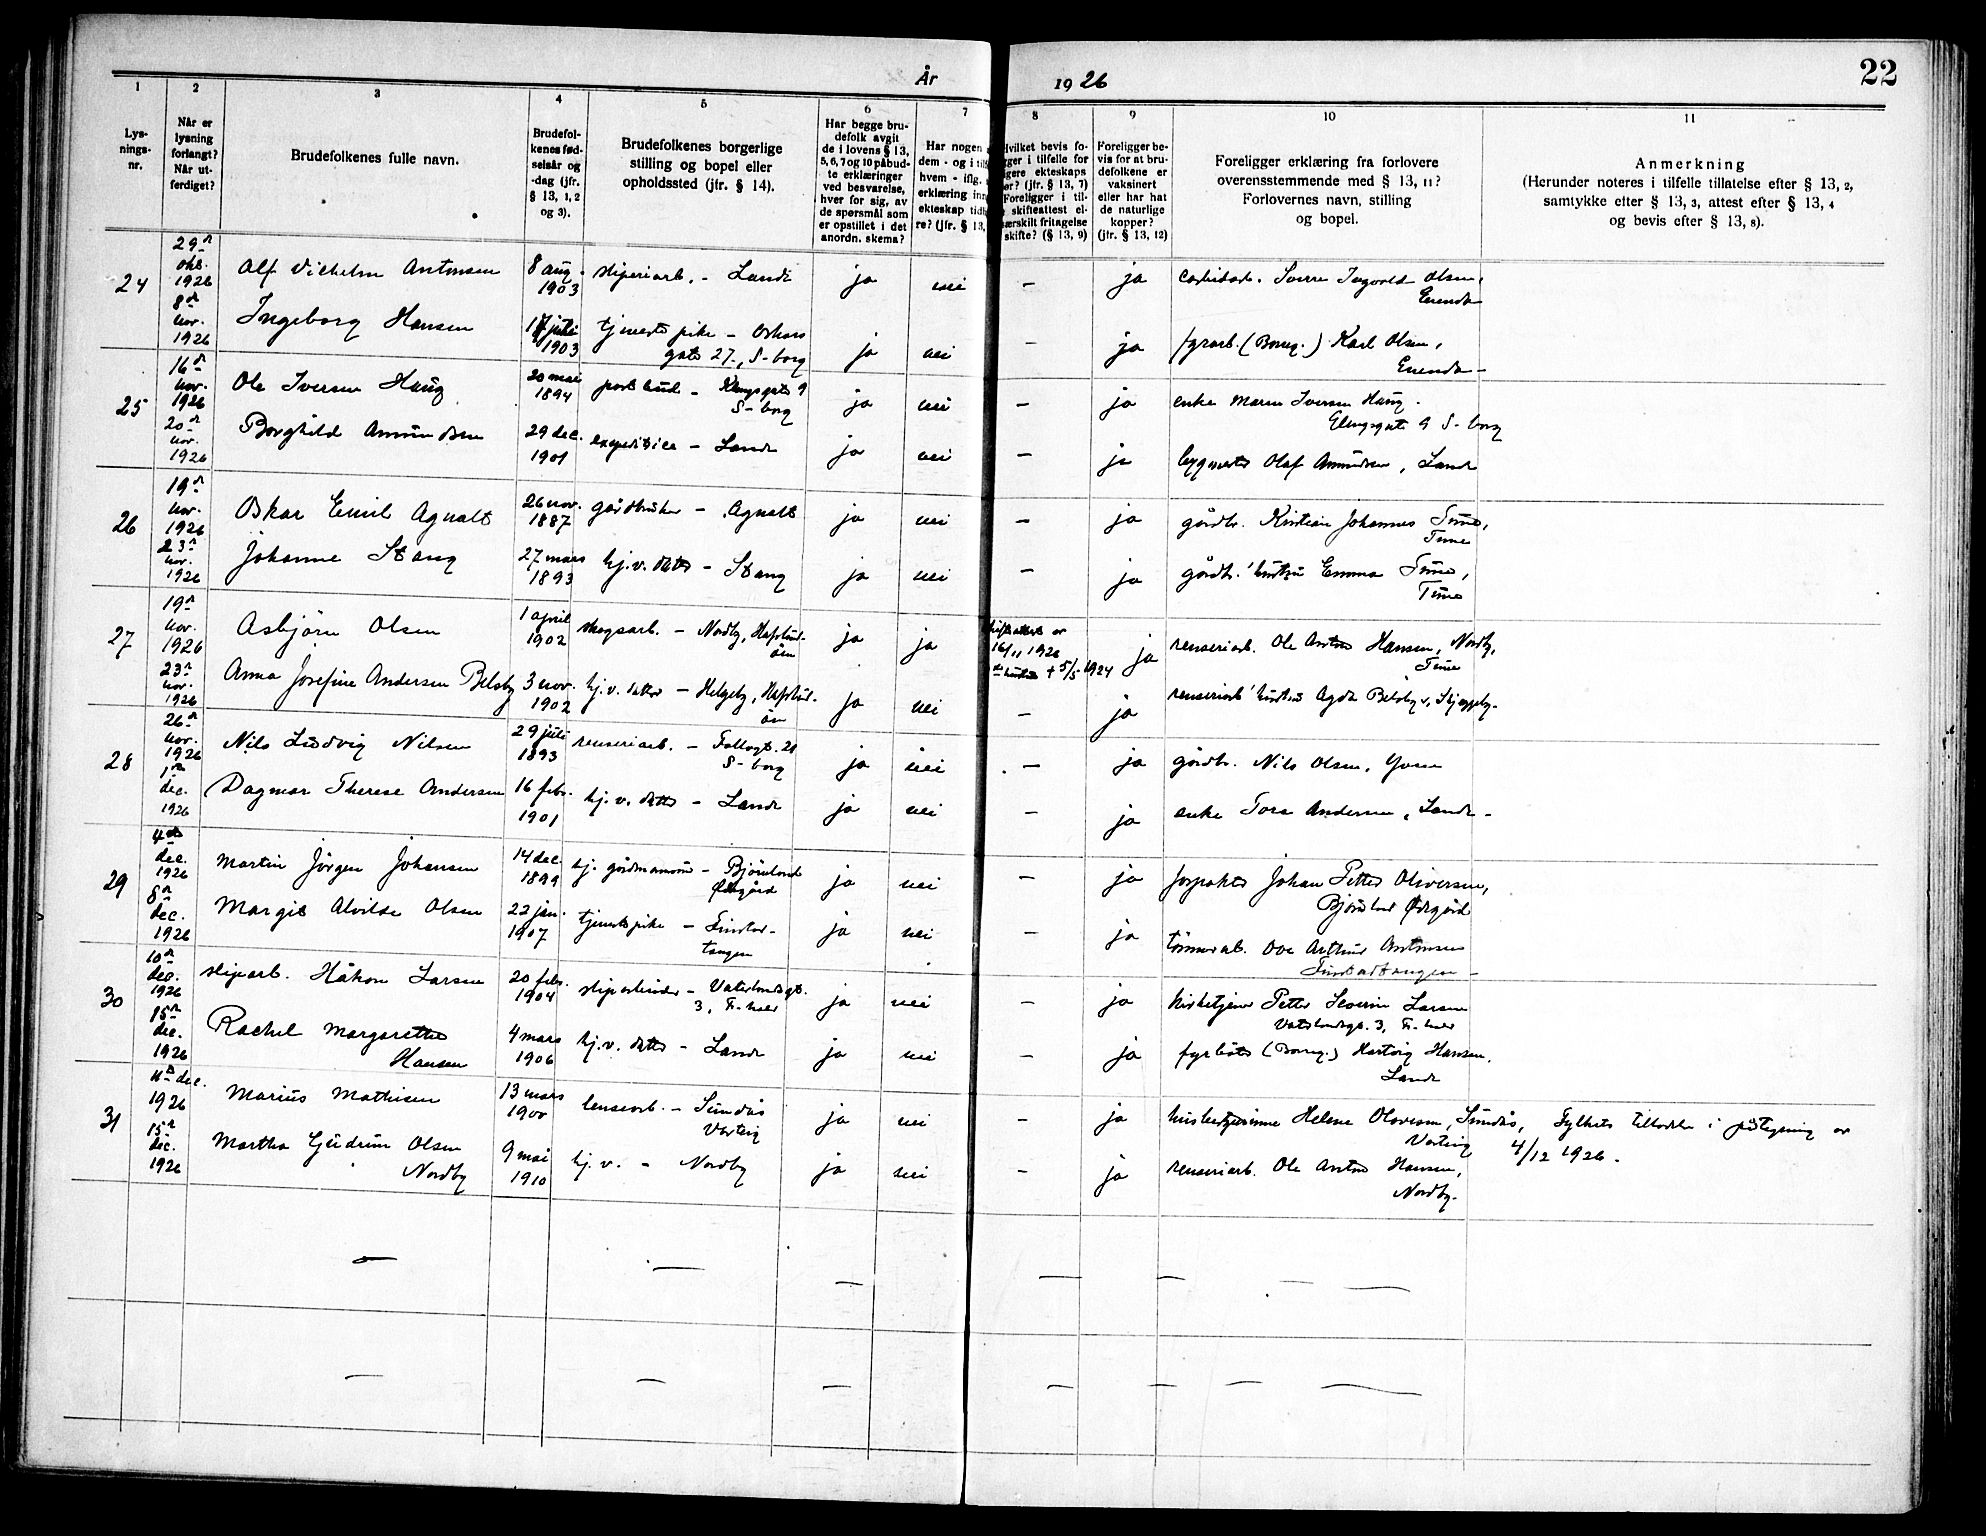 År 1926
22
1
2
3
4
5
6
7
8
9
10
11
Lys-
nings-
nr.
Når er
lysning
forlangt?
Når ut-
ferdiget?
Brudefolkenes fulle navn.
Brudefol-
kenes fød-
selsår og
-dag (jfr.
§ 13, 1, 2
og 3).
Brudefolkenes borgerlige
stilling og bopel eller
opholdssted (jfr. § 14).
Har begge bru-
defolk avgit
de i lovens § 13,
5, 6, 7 og 10 påbud-
te erklæringer
ved besvarelse,
hver for sig, av
de spørsmål som
er opstillet i det
anordn. skema?
Har nogen
dem - og i tilf
hvem - iflg.
erklæring inn
ekteskap tidh
re? (jfr. § 13,
Hvilket bevis fo-
gger i tilfelle for
gere ekteskaps
ør? (jfr. § 13, 7)
Foreligger i til-
skifteattest el-
særskilt fritagelse
skifte? (§ 13, 9)
Foreligger be-
vis for at bru-
defolkene er
vaksinert
eller har hat
de naturlige
kopper?
(jfr. § 13, 12)
Foreligger erklæring fra forlovere
overensstemmende med § 13, 11?
Forlovernes navn, stilling
og bopel.
Anmerkning
(Herunder noteres i tilfelle tillatelse efter § 13, 2,
samtykke efter § 13, 3, attest efter § 13, 4
og bevis efter § 13, 8).
24
29de
okt.
1926
Alf Vilhelm Antonsen
8 aug.
1903
sliperiarb. – Lande
ja
nei
–
ja
Sverre Ingvald Olsen,
Enenda
8de
nov.
1926
Ingeborg Hansen
juli
1903
tjenestepike – Oskars
gate 27, S-borg
ja
nei
–
ja
fyrarb. (Borreg.) Karl Olsen,
Enenda –
25
16de
nov.
1926
Ole Iversen Haug
20 mai
1894
postbud – 9
S-borg
ja
nei
–
ja
enke Maren Iversen Haug.
Glengsgate 9 S-borg
20de
nov.
1926
Borghild Amundsen
29 dec.
1901
expeditrice – Lande
ja
nei
–
ja
bygmester Olaf Amundsen, Lande
26
19de
nov.
1926
Oskar Emil Agnalt
26 nov.
1887
gårdbruker – Agnalt
ja
nei
–
ja
gårdbr. Kristian Johannes Tune,
Tune
23de
nov.
1926
Johanne Stang
27 mars
1893
hj.v. datter – Stang
ja
nei
–
ja
gårdbr.'hustru Emma Tune,
Tune
27
19de
nov.
1926
Asbjörn Olsen
1 april
1902
skogsarb. – Nordby, Hafslund-
öen
ja
ja
skifteattest av
16/11 1926
hustru † 5/5 1924
ja
renseriarb. Ole Anton Hansen, Nordby,
Tune
23de
nov.
1926
Anna Josefine Andersen Belsby
3 nov.
1902
hj.v. datter – Helgeby, Hafslund-
öen
ja
nei
–
ja
renseriarb' hustru Agda Belsby, Skjeggeby.
28
26de
nov.
1926
Nils Ludvig Nilsen
29 juli
1893
renseriarb. –
S-borg
ja
nei
–
ja
gårdbr. Nils Olsen, Yven
1ste
dec.
1926
Dagmar Therese Andersen
16 febr.
1901
hj.v. datter – Lande
ja
nei
–
ja
enke Tora Andersen, Lande –
29
4de
dec.
1926
Martin Jörgen Johansen
14 dec.
1899
hj. gårdmannssönn – Björnland
Ødegård
ja
nei
–
ja
forpakter Johan Petter Oliversen,
Björnland Ødegård
8de
dec.
1926
Margit Alvilde Olsen
22 jan.
1907
tjenestepike – Tindlør-
tangen
ja
nei
–
ja
tömmerarb. Ove Arthur Antonsen
30
10de
dec.
1926
sliparb. Håkon Larsen
20 febr.
1904
sliparbeider – Vaterlandsgt.
3, Fr.stad
ja
nei
–
ja
kirketjener Petter Severin Larsen
Vaterlandsgt. 3, Fr.stad
15de
dec.
1926
Rachel Margarethe
Hansen
4 mars
1906
hj.v. datter – Lande
ja
nei
–
ja
fyrböter (Borreg.) Hartvig Hansen,
Lande
31
11de dec.
1926
Marius Mathisen
13 mars
1900
lensearb. – Sundås
Varteig
ja
nei
–
ja
husbestyrerinne Helene Olavesen, Sundås,
Varteig
Fylkets tilladelse i påtegning av
4/12 1926.
15de
dec.
1926
Martha Gudrun Olsen
Nordby
9 mai
1910
hj.v. – Nordby
ja
nei
–
ja
renseriarb. Ole Anton Hansen,
Nordby.